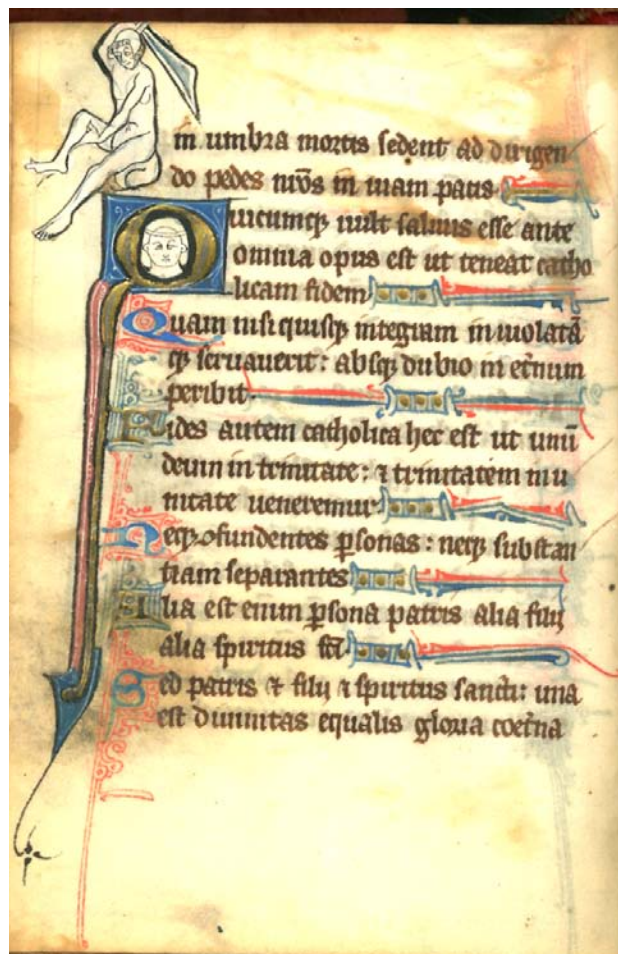 in umbra mortis sedent ad dirigen
do pedes nr̄os in uiam pacis
Quicumqꝫ uult saluus esse ante
omnia opus est ut teneat catho
licam fidem
Quam nisi quisqꝫ integram inuiolatā
qꝫ seruauerit: absqꝫ dubio in et̄num
peribit.
Fides autem catholica hec est ut unū
deum in trinitate: ⁊ trinitatem in u
nitate ueneremur
Neqꝫ ꝯfundentes ꝑsonas: neqꝫ substan
tiam separantes
Alia est enim ꝑsona patris alia filij
alia spiritus sc̄i
Sed patris ⁊ filij ⁊ spiritus sancti: una
est diuinitas equalis gloria coet̄na